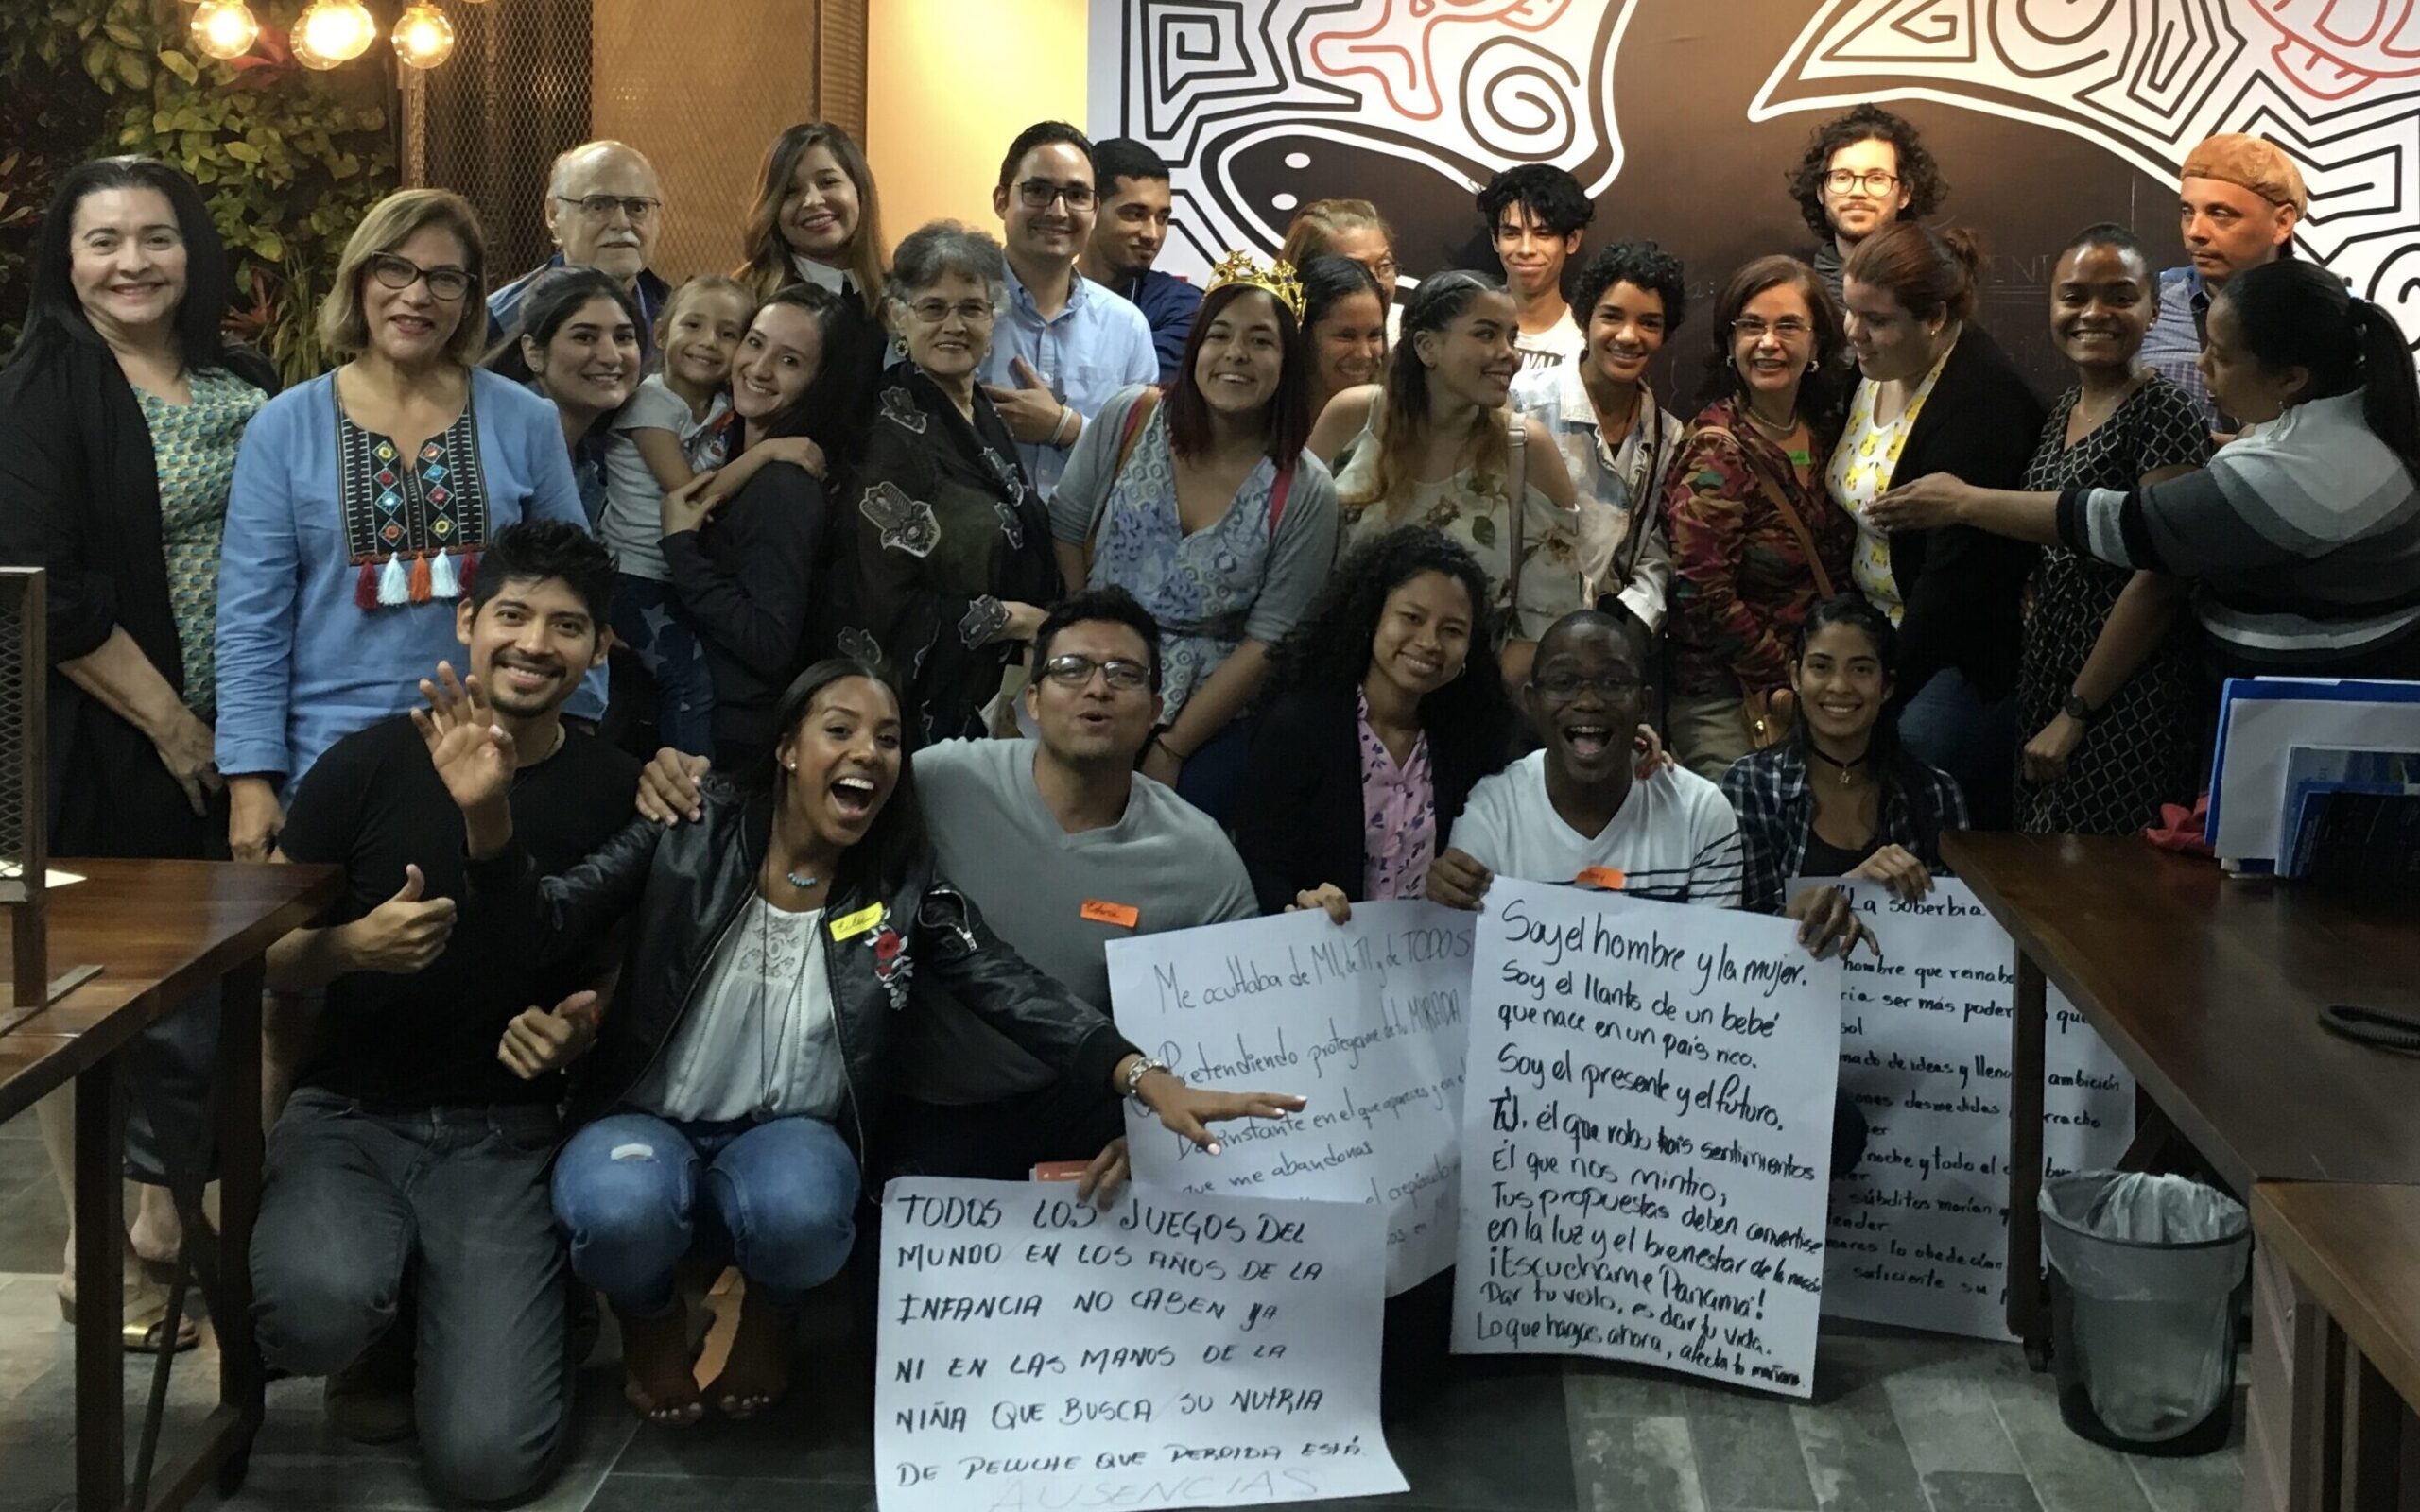 Me ocultaba de MI, de TI y de TODOS
Pretendiendo protegerme de tu MIRADA
instante en el que apareces y en el
que me abandonas
el crepúsculo
TODOS LOS JUEGOS DEL
MUNDO EN LOS AÑOS DE LA
INFANCIA NO CABEN YA
NI EN LAS MANOS DE LA
NIÑA QUE BUSCA SU NUTRIA
DE PELUCHE QUE PERDIDA ESTÁ.
AUSENCIAS
Soy el hombre y la mujer.
Soy el llanto de un bebé
que nace en un país rico.
Soy el presente y el futuro.
TÚ, él que robo mis sentimientos
Él que nos mintio;
Tus propuestas deben convertise
en la luz y el bienestar de la nación
¡Escuchame Panamá!
Dar tu voto, es dar tu vida.
Lo que hagas ahora, afecta tu mañana.
"La soberbia
hombre que reinaba
ría ser más poder que
sol
mado de ideas y lleno ambición
ones desmedidas rracho
er
noche y todo el
súbditos morían
ender
mares lo obedecían
suficiente su